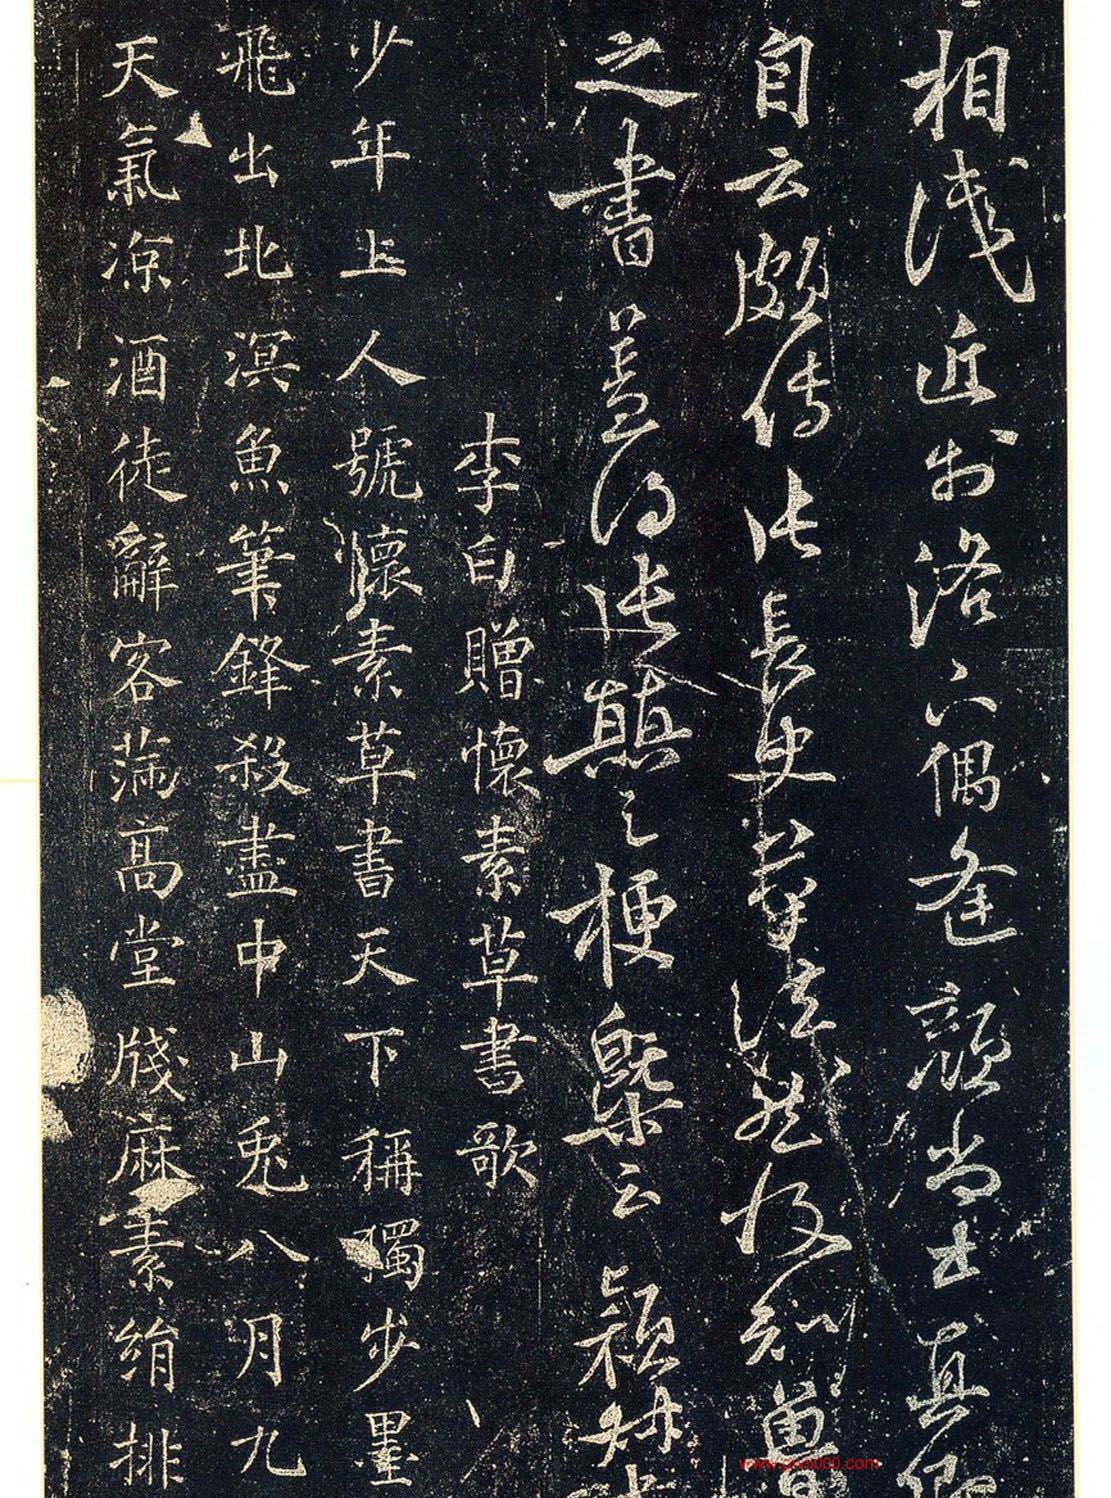 相淺近於洛下偶逢顏尚書真卿
自云頗傳張長史筆法然後知
之書蓋得張顛之梗槩云穎叔
李白贈懷素草書歌
少年上人號懷素草書天下稱獨步墨
飛出北溟魚筆鋒殺盡中山兔八月九
天氣凉酒徒辭客滿高堂牋麻素絹排